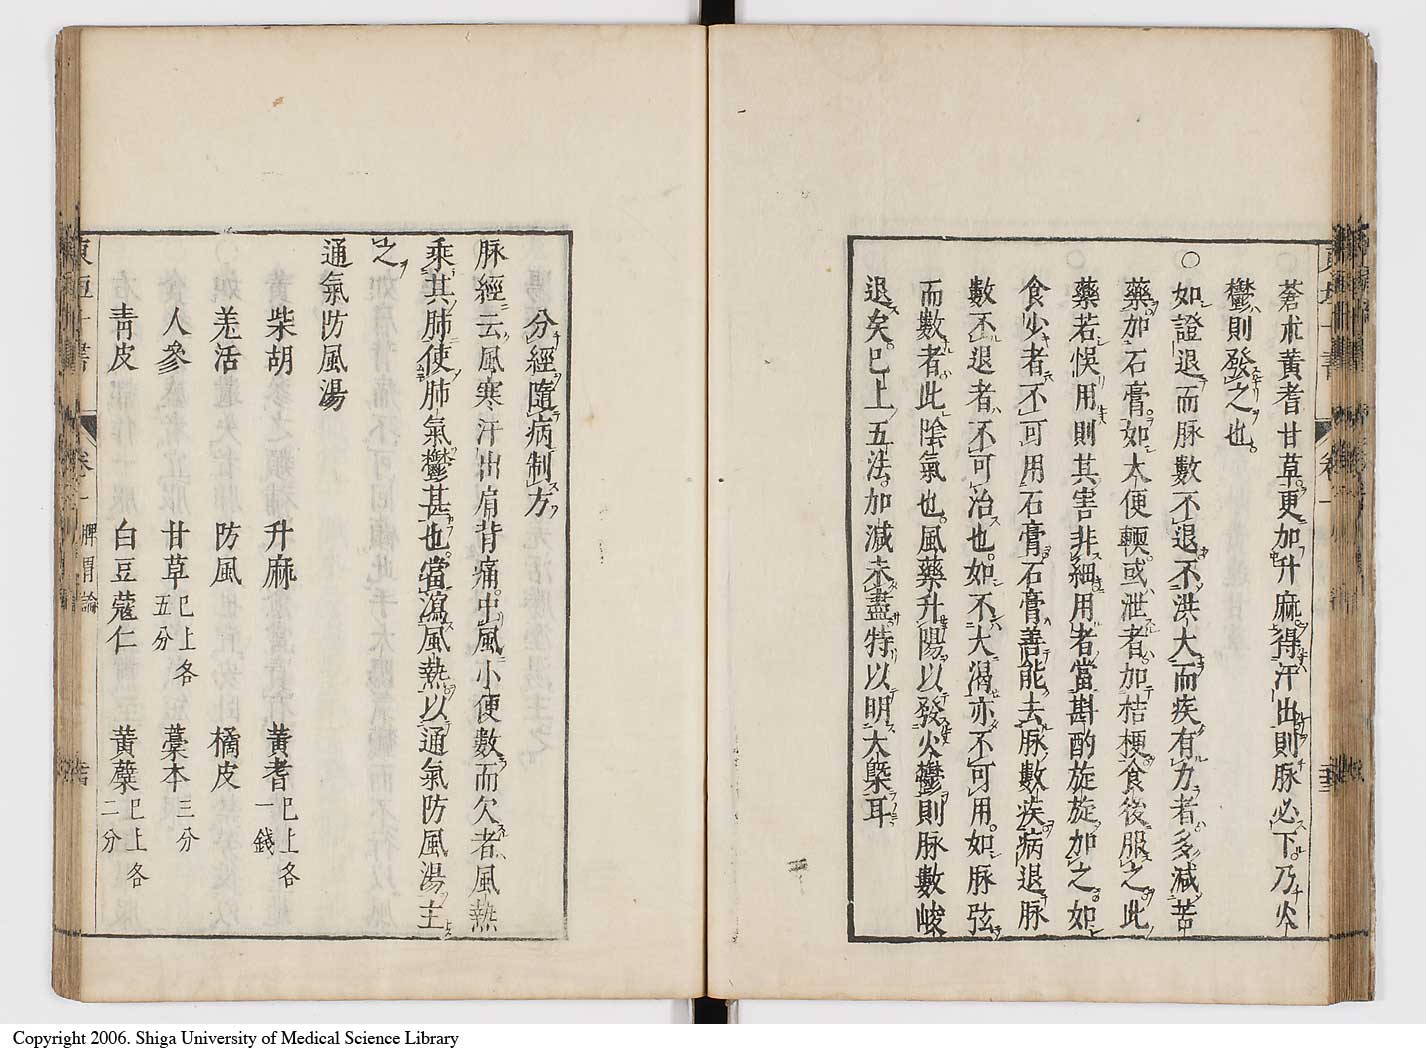 蒼朮黃耆甘草更加升麻得汗出則脉必下乃火
鬱則發之也
○如證退而脉數不退不洪大而疾有力者多減苦
藥加石膏如大便輭或泄者加桔梗食後服之此
藥若悞用則其害非細用者當斟酌旋旋加之如
食少者不可用石膏石膏善能去脉數疾病退脉
數不退者不可治也如不大渴亦不可用如脉弦
而數者此陰氣也風藥升陽以發火鬱則脉數峻
退矣已上五法加減未盡特以明大槩耳
分經隨病制方
脉經云風寒汗出肩背痛中風小便數而欠者風熱
乘其肺使肺氣鬱甚也當瀉風熱以通氣防風湯主
之
通氣防風湯
柴胡 升麻 黃耆已上各一錢
羗活 防風 橘皮
人參 甘草已上各五分 藁本三分
靑皮 白豆蔻仁 黃蘗已上各二分
東垣十書 卷一 脾胃論
Copyright 2006. Shiga University of Medical Science Library